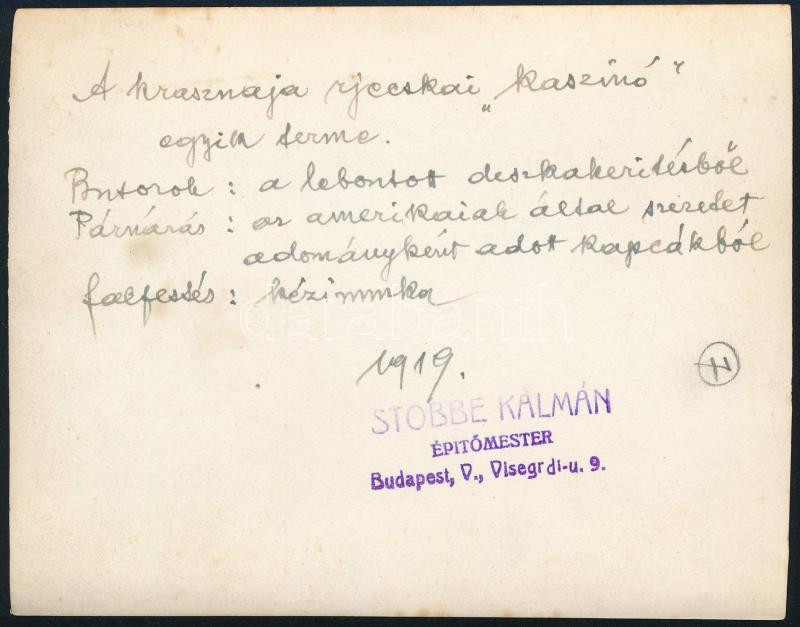 A krasznaja rjecskai „kaszinó"
egyik terme.
Butorok: a lebontott deszkakeritésből
Párnázás: az amerikaiak által szeretet
adományként adott kapcákból
falfestés: kézimunka
1919.
STOBBE KÁLMÁN
ÉPITŐMESTER
Budapest, V., Visegrdi-u. 9.
darabanth